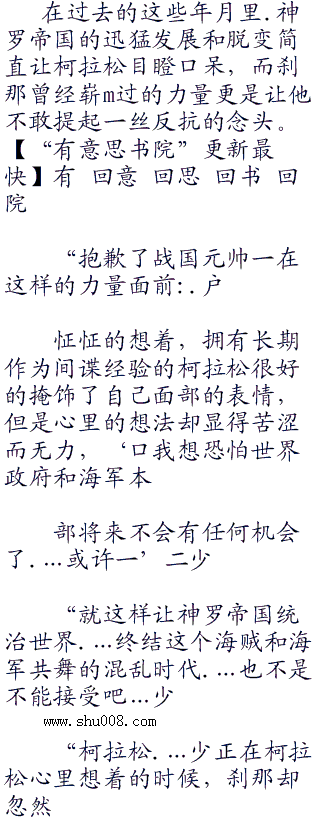 在过去的这些年月里.神
罗帝国的迅猛发展和脱变简
直让柯拉松目瞪口呆，而刹
那曾经崭m过的力量更是让他
不敢提起一丝反抗的念头。
【“有意思书院”更新最
快】有 回意 回思 回书 回
院
“抱歉了战国元帅一在
这样的力量面前:.户
怔怔的想着，拥有长期
作为间谍经验的柯拉松很好
的掩饰了自己面部的表情，
但是心里的想法却显得苦涩
而无力，‘口我想恐怕世界
政府和海军本
部将来不会有任何机会
了.…或许一’二少
“就这样让神罗帝国统
治世界.…终结这个海贼和海
军共舞的混乱时代.…也不是
不能接受吧…少
www.shu008.com
“柯拉松.…少正在柯拉
松心里想着的时候，刹那却
忽然